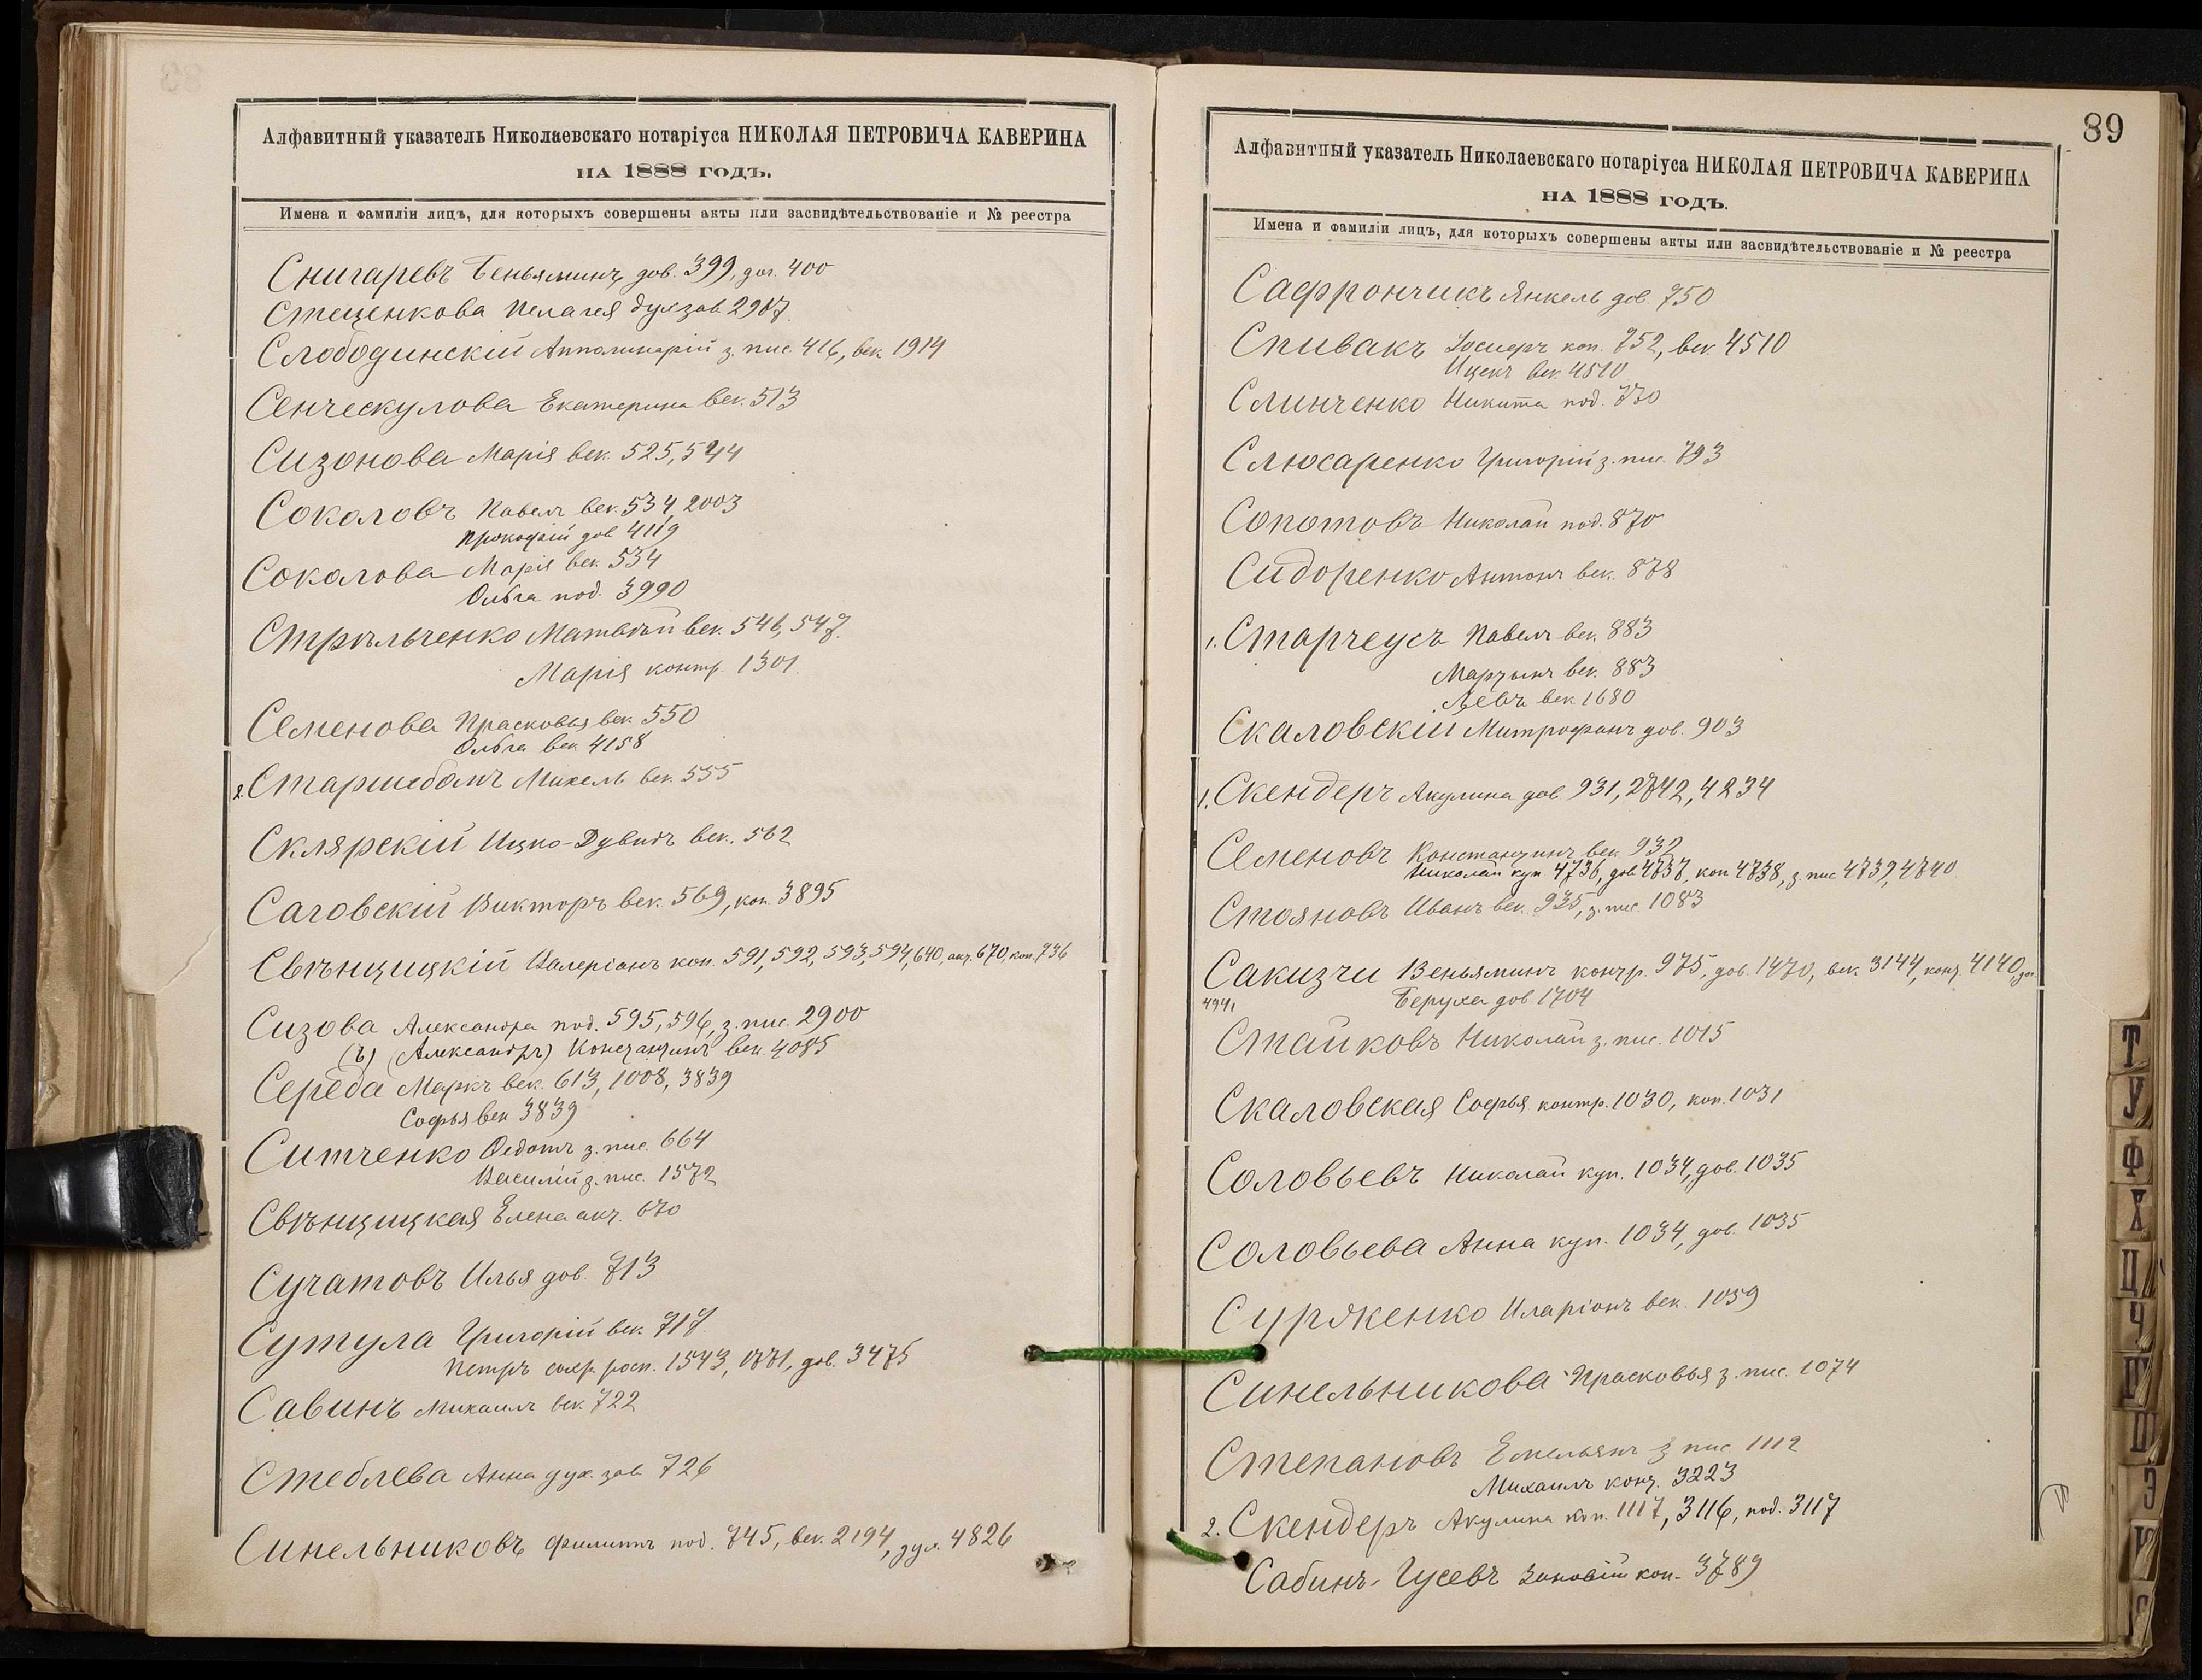 Алфавитный указатель Николаевскаго нотаріуса НИКОЛАЯ ПЕТРОВИЧА КАВЕРИНА
НА 1888 ГОДЪ.
Имена и фамиліи лицъ, для которыхъ совершены акты или засвидѣтельствованіе и № реестра
Снигаревъ Беньяминъ дов. 399, дог. 400
Стеценкова Пелагея дух зав 2907
Слободинскій Апполинарій з. пис. 416, век. 1914
Сенческулова Екатерина век. 513
Сизонова Марія век. 525, 544
Соколовъ Павелъ век. 534, 2003
Прокофій дов 4119
Соколова Марія век. 534
Ольга под. 3990
Стрѣльченко Матвѣй век. 546, 547.
Марія контр. 1301.
Семенова Прасковья век. 550
Ольга век 4158
2. Старшебамъ Михель век. 555
Склярскій Ицко-Дувидъ век. 562
Саговскій Викторъ век. 569, коп. 3895
Свѣнцицкій Валеріанъ коп. 591, 592, 593, 594, 640, акт. 670, коп. 736
Сизова Александра под. 595, 596, з. пис. 2900
(ъ) (Александръ) Константинъ век. 4085
Середа Маркъ век. 613, 1008, 3839
Софья век 3839
Ситченко Федотъ з. пис. 664
Василій з. пис. 1572
Свѣнцицкая Елена акт. 670
Сучатовъ Илья дов. 713
Сутула Григорій век. 717.
Петръ сохр. росп. 1543, 1771, дов. 3475
Савинъ Михаилъ век. 722
Стеблева Анна дух. зав. 726
Синельниковъ Филиппъ под. 745, век. 2194, дух. 4826
89
Алфавитный указатель Николаевскаго нотаріуса НИКОЛАЯ ПЕТРОВИЧА КАВЕРИНА
НА 1888 ГОДЪ.
Имена и фамиліи лицъ, для которыхъ совершены акты или засвидѣтельствованіе и № реестра
Сафрончикъ Янкель дов. 750
Спивакъ коп. 752, век. 4510
Ицекъ век. 4510
Слинченко Никита под. 770
Слюсаренко Григорій з. пис. 793
Сопотовъ Николай под. 870
Сидоренко Антонъ век. 878
1. Старчеусъ Павелъ век. 883
Мартынъ век. 883
Левъ век 1680
Скаловскій Митрофанъ дов. 903
1. Скендеръ Акулина дов 931, 2742, 4234
Семеновъ Константинъ век 932
Николай куп 4736, дов 4737, коп 4738, з. пис 4739, 4740
Стояновъ Иванъ век. 935, з. пис. 1083
Сакизчи Веньяминъ контр. 975, дов. 1470, век. 3144, конт. 4140, дог.
4941 Беруха дов 1704
Стайковъ Николай з. пис. 1015
Скаловская Софья контр. 1030, коп. 1031
Соловьевъ Николай куп. 1034, дов. 1035
Соловьева Анна куп. 1034, дов. 1035
Суряженко Иларіонъ век. 1059
Синельникова Прасковья з. пис. 1074
Степановъ Емельянъ з пис 1112
Михаилъ конт. 3223
2. Скендеръ Акулина коп. 1117, 3116, под. 3117
Сабинъ-Гусевъ Зиновій коп. 3789
Т
У
Ф
Х
Ц
Ч
Ш
Щ
Э